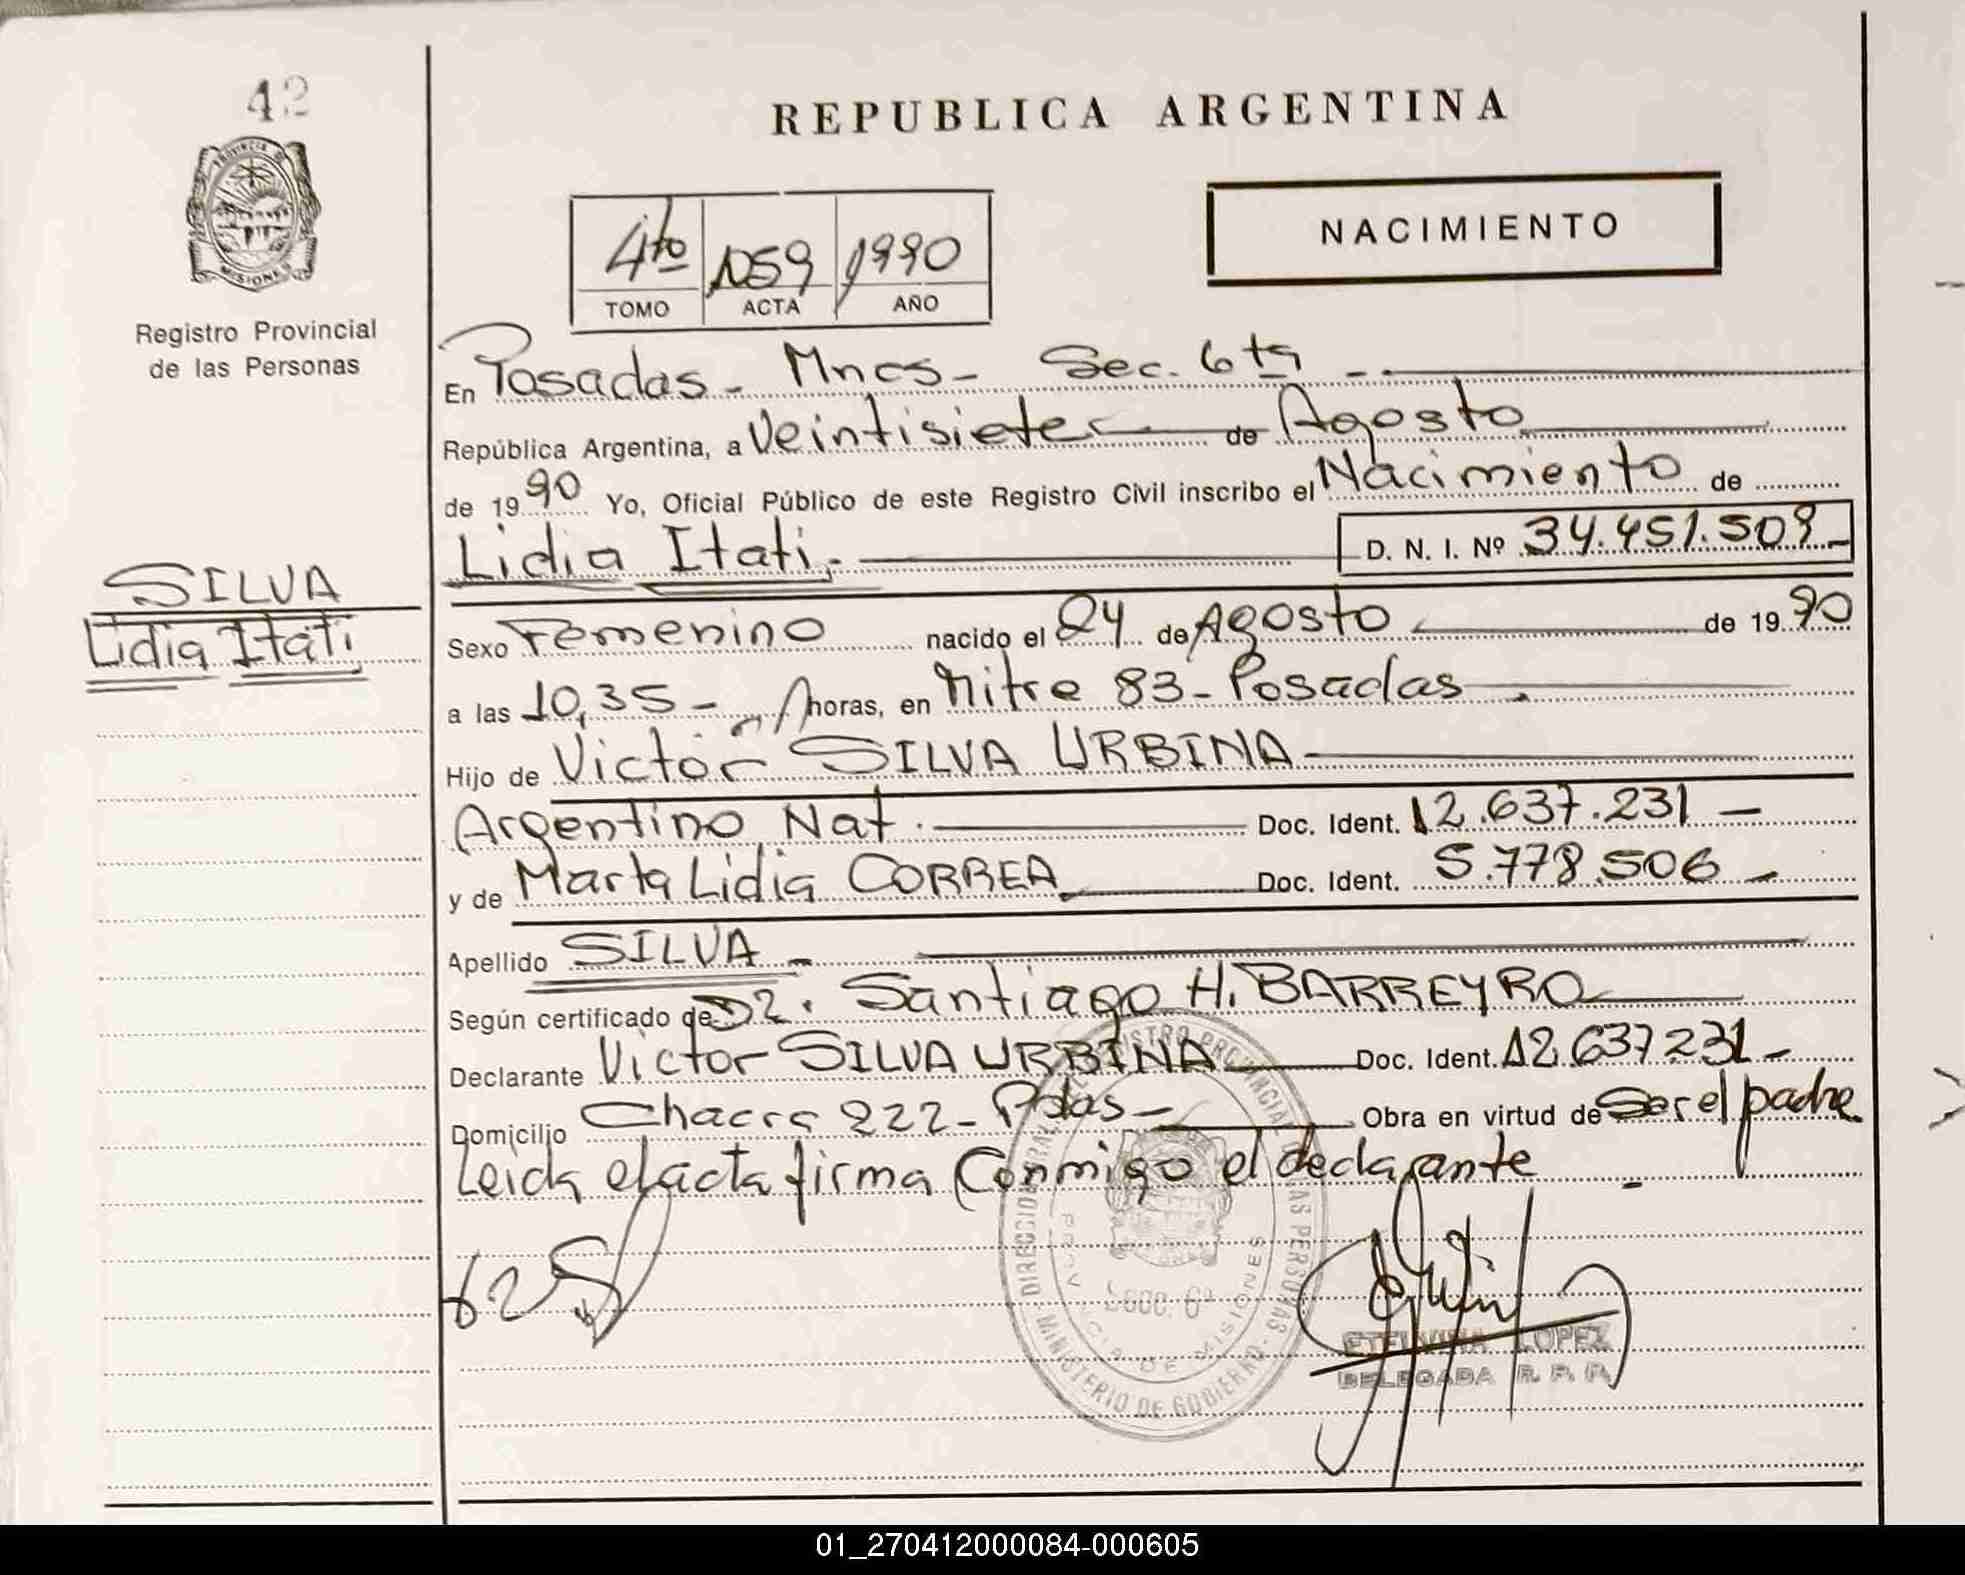 42
PROVINCIA DE
MISIONES
Registro Provincial
de las Personas
SILVA
Lidia Itati
REPUBLICA ARGENTINA
NACIMIENTO
4to 1059 1990
TOMO ACTA AÑO
En Posadas - Mnes - Sec. 6ta
República Argentina, a Veintisiete de Agosto
de 1990 Yo, Oficial Público de este Registro Civil inscribo el Nacimiento de
Lidia Itati.- D. N. I. Nº 34.451.509-
Sexo Femenino nacido el 24 de Agosto de 1990
a las 10,35 - horas, en Mitre 83 - Posadas
Hijo de Victor SILVA URBINA
Argentino Nat. Doc. Ident. 12.637.231 -
y de Marta Lidia CORREA Doc. Ident. 5.778.506 -
Apellido SILVA -
Según certificado de Dr. Santiago H. BARREYRO
Declarante Victor SILVA URBINA Doc. Ident. 12.637.231 -
Domicilio Chacra 222 - Pdas - Obra en virtud de Ser el padre
Leida el acta firma Conmigo el declarante
DIRECCION GRAL. REGISTRO PROVINCIAL DE LAS PERSONAS
MINISTERIO DE GOBIERNO
PROVINCIA DE MISIONES
Secc. 6ª
ETELVINA LOPEZ
DELEGADA R. P. P.
01_270412000084-000605